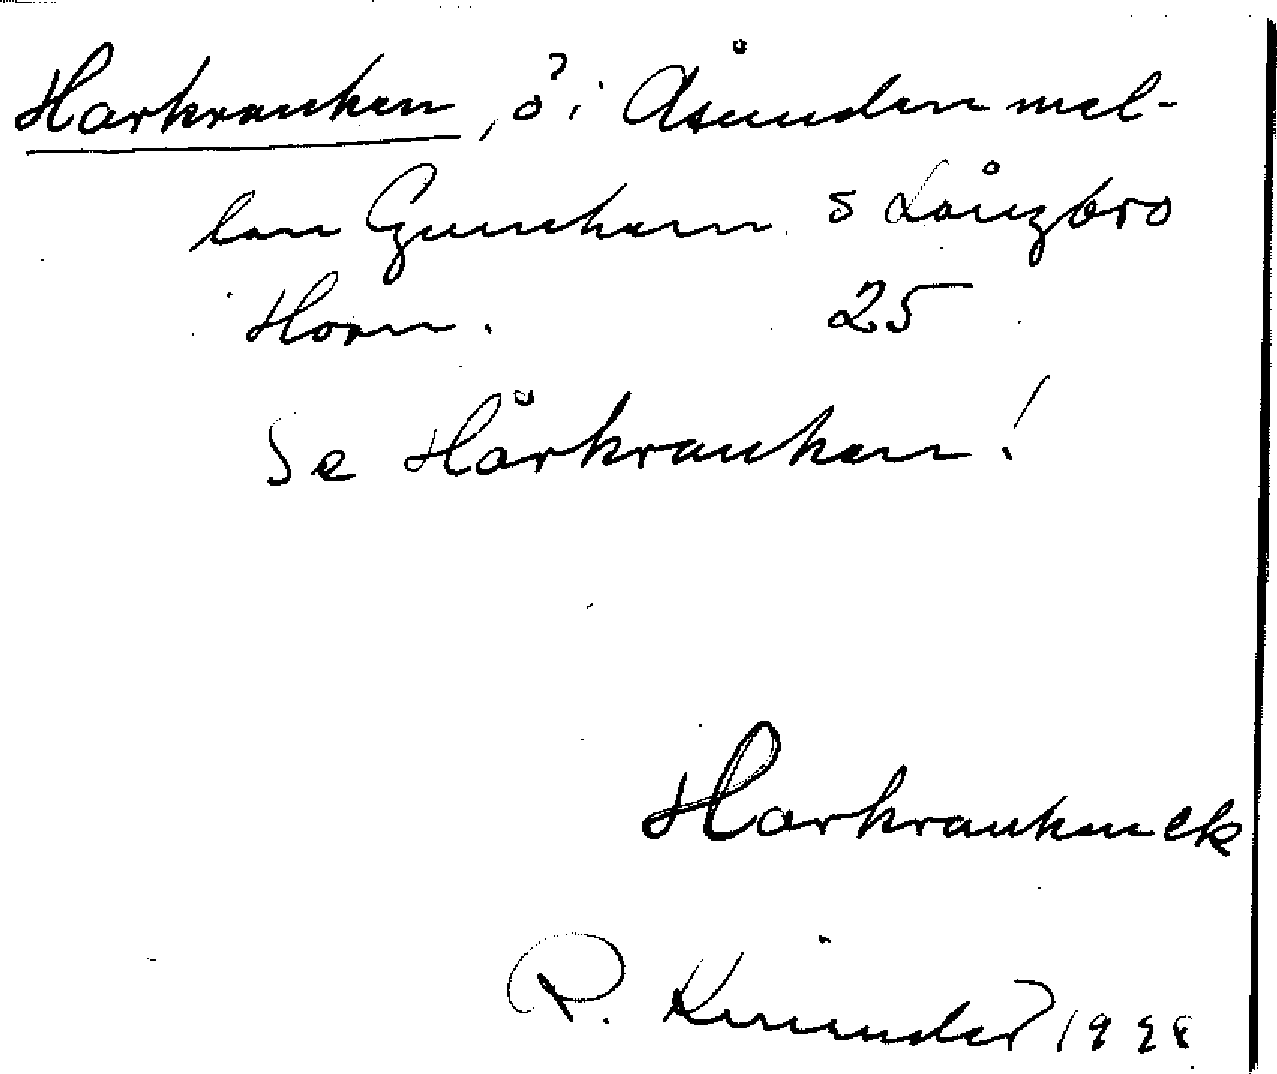 Harkranken, ö i Åsunden mel-
lan Gunshem s Långbro
Horn. 25
Se Hårkranken!
Harkranken ek
R. Kinander 1928